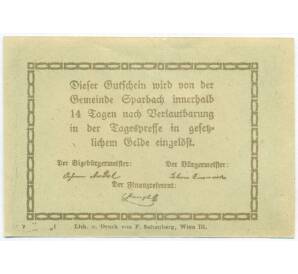 Dieser Gutschein wird von der
Gemeinde Sparbach innerhalb
14 Tagen nach Verlautbarung
in der Tagespresse in gesetz-
lichem Gelde eingelöst.
Der Vizebürgermeister: Der Bürgermeister:
Der Finanzreferent:
Lith. u. Druck von F. Schamberg, Wien III.